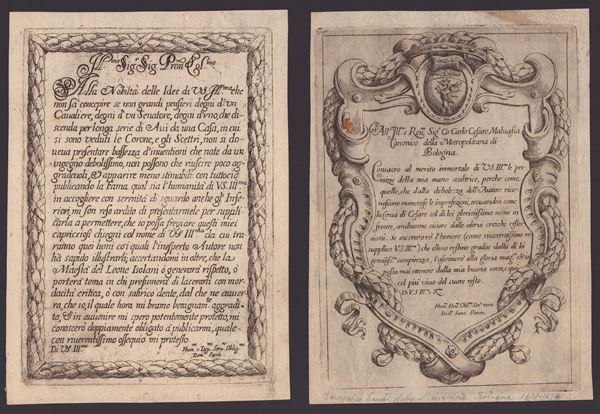 Ill.mo Sig.r Sig. Pron. Col.mo
Alla Nobiltà delle Idee di VS Ill.ma che
non sà concepire se non grandi pensieri degni d'vn
Caualiere, degni d'vn Senatore, degni d'vno, che di-
scenda per longa serie di Aui da vna Casa, in cui
si sono veduti le Corone, e gli Scettri, non si do-
ueua presentare bassezza d'inuentioni che nate da un
ingegno debolissimo, non possono che riuscire poco ag-
gradeuoli, & apparire meno stimabili: con tuttociò
publicando la Fama, qual sia l'humanità di V.S. Ill.ma
in accogliere con serenità di sguardo anche gl' Infe-
riori, mi son reso ardito di presentarmele per suppli-
carla a permettere, che io possa fregiare questi miei
capricciosi chiegni col nome di VS Ill.ma da cui tra-
ranno quei lumi co i quali l'inesperto Autore non
hà saputo illustrarli; accertandomi in oltre, che la
Maestà del Leone Isolani ò genererà rispetto, ò
porterà tema in chi presumerà di lacerarli con mor-
dacità critica, ò con satirico dente, dal che ne auuer-
rà, che io, il quale hora mi bramo benignam.te aggradi-
to, & in auuenire mi spero potentemente protetto, mi
conoscerò doppiamente obligato à publicarmi, quale
con riuerentissimo ossequio mi protesto
Di VS Ill.ma
Hum. e Deu. Seru. Oblig.
Dom.co Santi
All' Ill. e Reu. Sig. Co. Carlo Cesare Maluasia
Canonico della Metropolitana di
Bologna.
Consacro al merito immortale di V.S. Ill.ma le pri-
mizie della mia mano scultrice, perche con-
quelle, che dalla debolezza dell'Autore rico-
noscono numerose le imperfezioni, trouandosi come
la Cerua di Cesare col di lei gloriosissimo nome in
fronte, anderanno sicure dalle altrui critiche rifles-
sioni. Se incontrerò l'honore (come riuerentissimo ne
supplico V.S. Ill.ma) che elleno restino gradite dalla di lei
gentiliss.ma compitezza, l'ascriuerò alla gloria mag.re che io
possa mai ottenere dalla mia buona sorte; que
col più viuo del cuore resto.
Di V.S. Ill.ma e R.
Hum. Deu. Obl. Ser. vero
Dom. Santi Pittore.
Domenico Santi detto Mengazzino Bologna 1621-1694